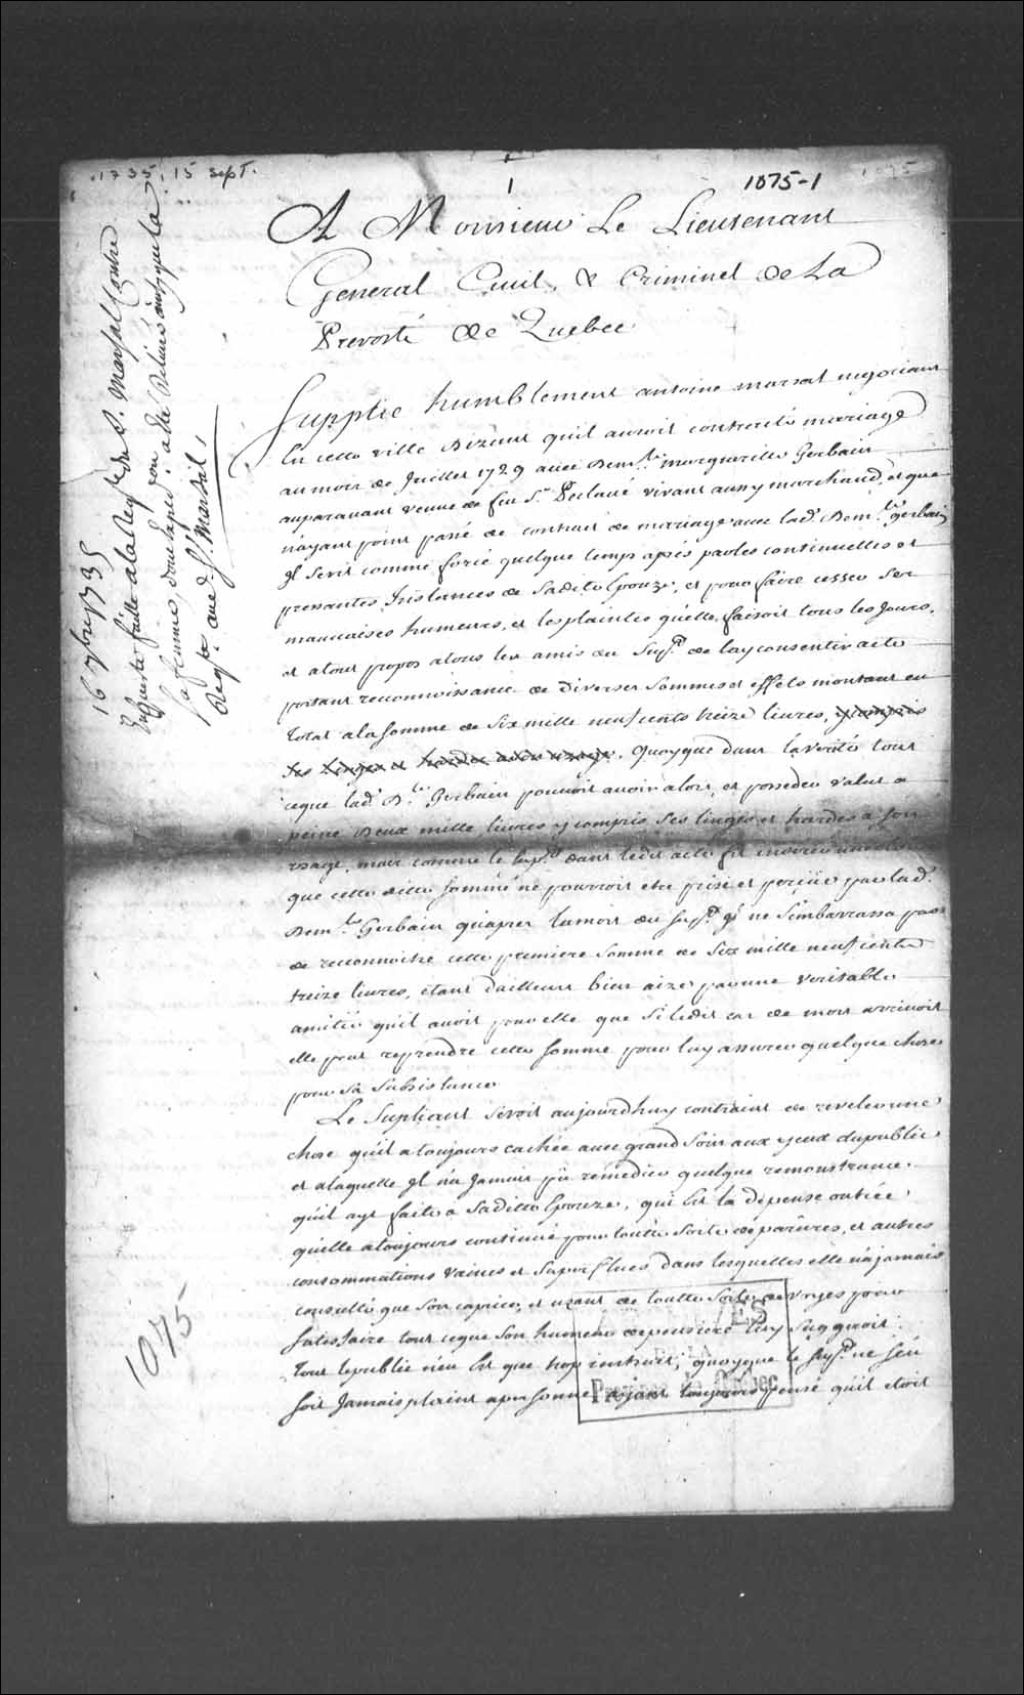 1735, 15 sept.
1
1075-1
1075
A Monsieur Le Lieutenant
General Civil & Criminel de La
Prevosté de Quebec
Supplie humblement antoine marsal negociant
En cette ville Dizant quil auroit contracté mariage
au mois de Juillet 1729 avec Dem.lle marguerite Gerbain
auparavant veuve de feu S.r vivant aussy marchand, et que
n'ayant point passé de contrat de mariage avec lad. Dem.lle gerbain
Il seroit comme forcé quelque temps aprés par les continuelles et
pressantes Instances de Sadite Epouze, et pour faire cesser ses
mauvaises humeures, et les plaintes qu'elle faisoit tous les Jours,
et atout propos atous les amis du Sup.t de luy consentir acte
portant reconnoissance de Diverses Sommes et effets montant en
total ala somme de Six mille neuf cents treize livres, y compris
ses Linges et hardes a son usage. quoyque dans la verité tout
ceque lad. D.lle Gerbain pouvoit avoir alors, et posseder valut a
peine Deux mille livres y compris ses linges et hardes a son
usage, mais comme le Sup.t dans ledit acte fit inserer
que cette ditte somme ne pourroit etre prise et perçüe par lad.
Dem.lle Gerbain qu'apres lamort du Sup.t Il ne Sembarrassa pas
de reconnoitre cette premiere Somme de Six mille neuf cents
treize livres, étant dailleurs bien aize par une veritable
amitié qu'il avoit pour elle que Si ledit cas de mort arrivoit
elle peut reprendre cette Somme pour luy assurer quelque chose
pour Sa Subsistance
Le Supliant Seroit aujourdhuy contraint de reveler une
chose qu'il a toujours cachée avec grand Soin aux yeux dupublic
et alaquelle Il n'a Jamais pû remedier quelque remonstrance
qu'il ayt faite a Saditte Epouze, qui Est la dépense outrée
qu'elle a toujours continué pour toutte Sorte de parures, et autres
consommations vaines et Superflues dans lesquelles elle n'a jamais
consulté que Son caprice, et usant de toutte Sorte de voyes pour
Satisfaire tout ceque Son humeur depensiere luy Suggeroit
Tout lepublic n'en Est que trop instruit, quoyque le Sup.t ne s'en
soit Jamais plaint apersonne ayant toujours pensé qu'il etoit
16 7bre 1735
Requeste faitte ala Req.te du S. Marsal Contre
sa femme,
Req.te avec S.r Marsal
1075
Province de Québec